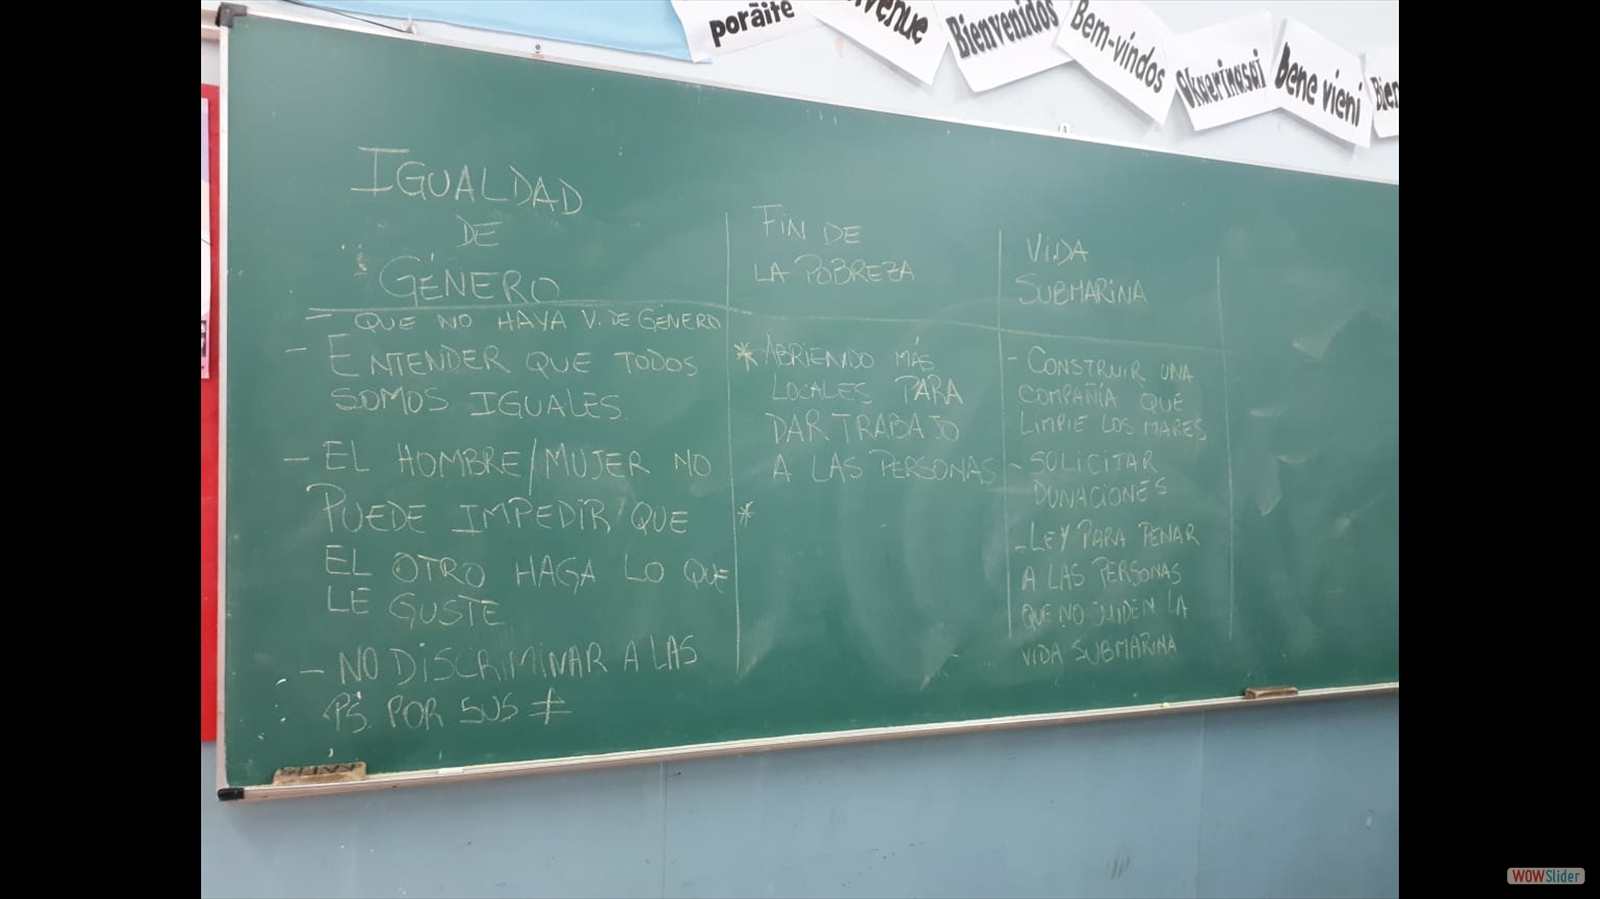 porãite
Bienvenidos
Bem-vindos
Okaerinasai
Bene vieni
IGUALDAD
DE
GÉNERO
- QUE NO HAYA V. DE GÉNERO
- ENTENDER QUE TODOS
SOMOS IGUALES.
- EL HOMBRE/MUJER NO
PUEDE IMPEDIR QUE
EL OTRO HAGA LO QUE
LE GUSTE
- NO DISCRIMINAR A LAS
PS. POR SUS ≠
FIN DE
LA POBREZA
* ABRIENDO MÁS
LOCALES PARA
DAR TRABAJO
A LAS PERSONAS
*
VIDA
SUBMARINA
- CONSTRUIR UNA
COMPAÑÍA QUE
LIMPIE LOS MARES
- SOLICITAR
DONACIONES
- LEY PARA PENAR
A LAS PERSONAS
QUE NO CUIDEN LA
VIDA SUBMARINA
WOWSlider